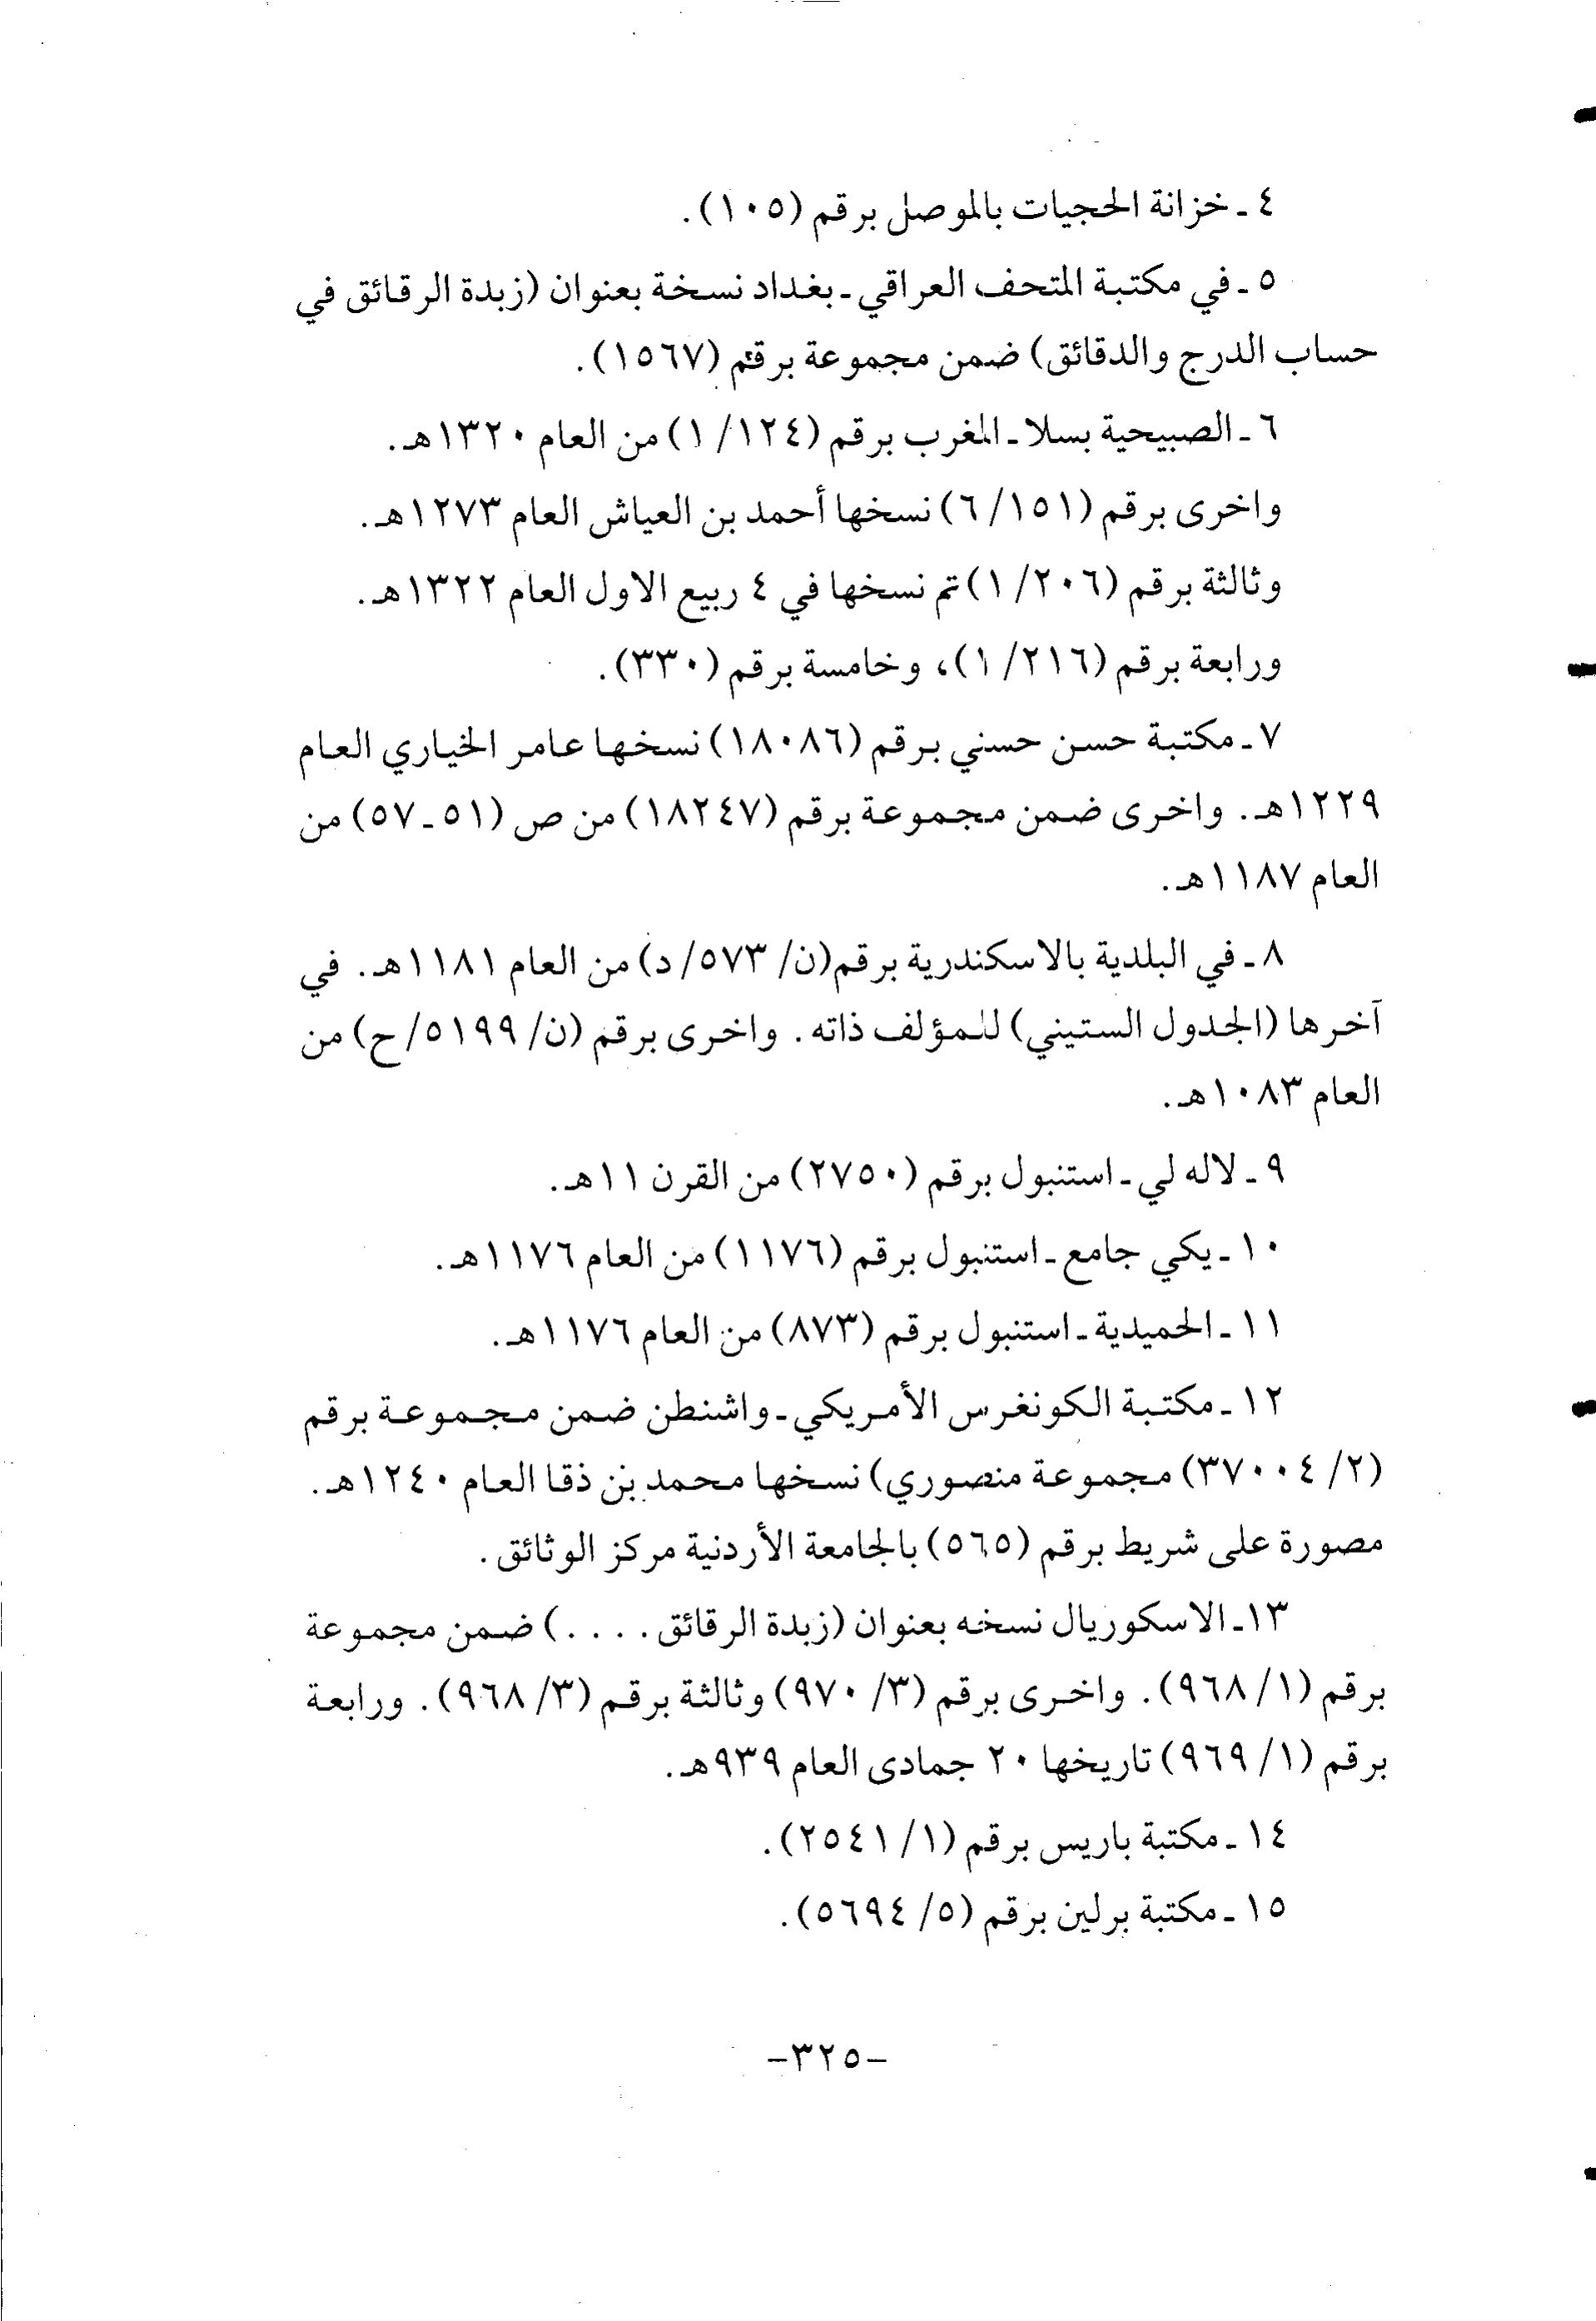 ٤ ـ خزانة الحجيات بالموصل برقم (١٠٥).
٥ ـ في مكتبة المتحف العراقي ـ بغداد نسخة بعنوان (زبدة الرقائق في
حساب الدرج والدقائق) ضمن مجموعة برقم (١٥٦٧).
٦ ـ الصبيحية بسلا ـ المغرب برقم (١٢٤/ ١) من العام ١٣٢٠هـ.
واخرى برقم (١٥١/ ٦) نسخها أحمد بن العياش العام ١٢٧٣هـ.
وثالثة برقم (٢٠٦/ ١) تم نسخها في ٤ ربيع الاول العام ١٣٢٢هـ.
ورابعة برقم (٢١٦/ ١)، وخامسة برقم (٣٣٠).
٧ ـ مكتبة حسن حسني برقم (١٨٠٨٦) نسخها عامر الخياري العام
١٢٢٩هـ. واخرى ضمن مجموعة برقم (١٨٢٤٧) من ص (٥١ ـ ٥٧) من
العام ١١٨٧هـ.
٨ ـ في البلدية بالاسكندرية برقم(ن/ ٥٧٣/ د) من العام ١١٨١هـ. في
آخرها (الجدول الستيني) للمؤلف ذاته. واخرى برقم (ن/ ٥١٩٩/ ح) من
العام ١٠٨٣هـ.
٩ ـ لاله لي ـ استنبول برقم (٢٧٥٠) من القرن ١١هـ.
١٠ ـ يكي جامع ـ استنبول برقم (١١٧٦) من العام ١١٧٦هـ.
١١ ـ الحميدية ـ استنبول برقم (٨٧٣) من العام ١١٧٦هـ.
١٢ ـ مكتبة الكونغرس الأمريكي ـ واشنطن ضمن مجموعة برقم
(٢/ ٣٧٠٠٤) مجموعة منصوري) نسخها محمد بن ذقا العام ١٢٤٠هـ.
مصورة على شريط برقم (٥٦٥) بالجامعة الأردنية مركز الوثائق.
١٣ـ الاسكوريال نسخه بعنوان (زبدة الرقائق. . . .) ضمن مجموعة
برقم (١/ ٩٦٨). واخرى برقم (٣/ ٩٧٠) وثالثة برقم (٣/ ٩٦٨). ورابعة
برقم (١/ ٩٦٩) تاريخها ٢٠ جمادى العام ٩٣٩هـ.
١٤ ـ مكتبة باريس برقم (١/ ٢٥٤١).
١٥ ـ مكتبة برلين برقم (٥/ ٥٦٩٤).
-٣٢٥-